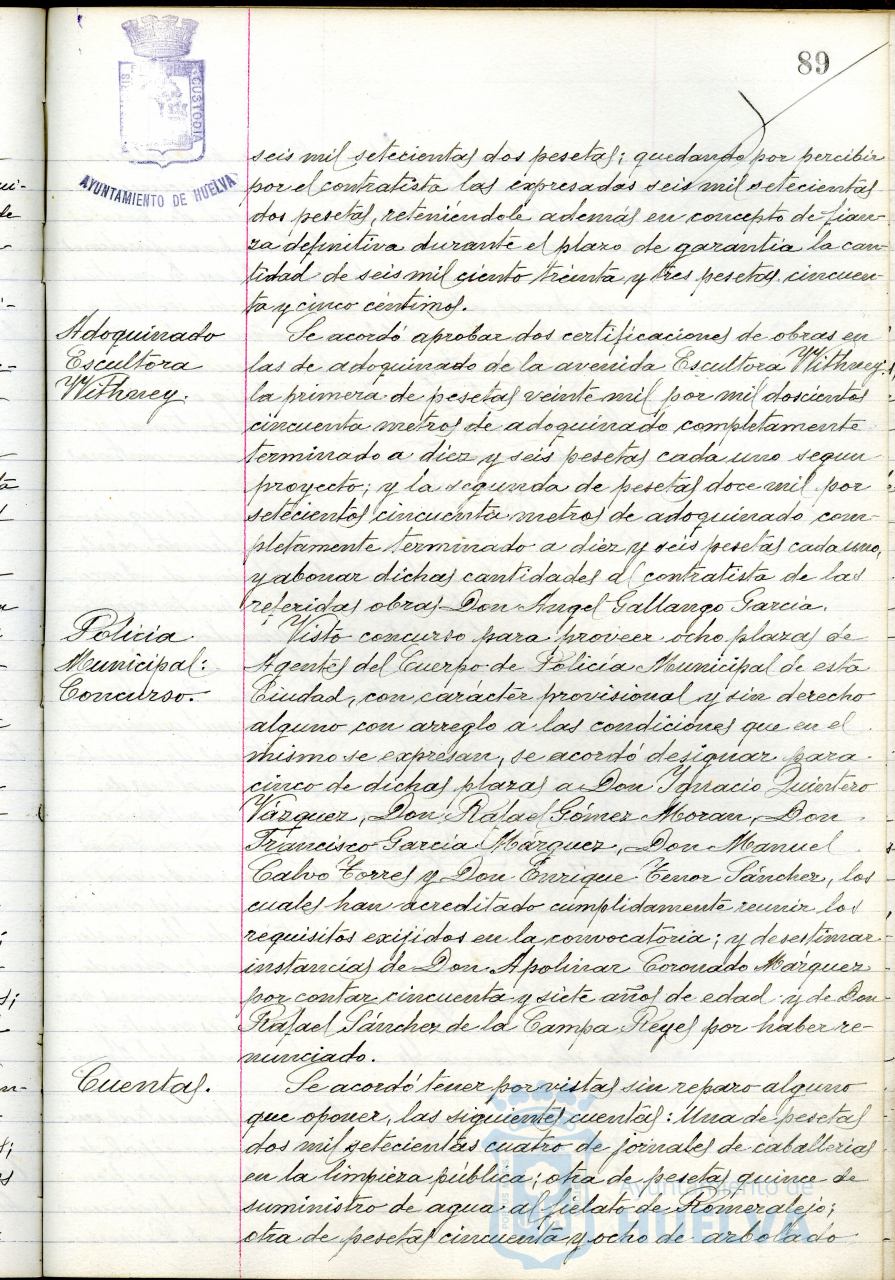 89
CUSTODIA
AYUNTAMIENTO DE HUELVA
seis mil setecientas dos pesetas; quedando por percibir
por el contratista las expresadas seis mil setecientas
dos pesetas, reteniéndole además en concepto de fian-
za definitiva durante el plazo de garantía la can-
tidad de seis mil ciento treinta y tres pesetas cincuen-
ta y cinco céntimos.
Adoquinado
Escultora
Withney.
Se acordó aprobar dos certificaciones de obras en
las de adoquinado de la avenida Escultora Withney,
la primera de pesetas veinte mil por mil doscientos
cincuenta metros de adoquinado completamente
terminado a diez y seis pesetas cada uno segun
proyecto; y la segunda de pesetas doce mil por
setecientos cincuenta metros de adoquinado com-
pletamente terminado a diez y seis pesetas cada uno,
y abonar dichas cantidades al contratista de las
referidas obras Don Angel Gallango Garcia.
Policía
Municipal:
Concurso.
Visto concurso para proveer ocho plazas de
Agentes del Cuerpo de Policía Municipal de esta
Ciudad, con carácter provisional y sin derecho
alguno con arreglo a las condiciones que en el
mismo se expresan, se acordó designar para
cinco de dichas plazas a Don Ignacio Quintero
Vázquez, Don Rafael Gómez Moran, Don
Francisco García Márquez, Don Manuel
Calvo Torres y Don Enrique Tenor Sánchez, los
cuales han acreditado cumplidamente reunir los
requisitos exijidos en la convocatoria; y desestimar
instancias de Don Apolinar Coronado Márquez
por contar cincuenta y siete años de edad y de Don
Rafael Sánchez de la Campa Reyes por haber re-
nunciado.
Cuentas.
Se acordó tener por vistas sin reparo alguno
que oponer, las siguientes cuentas: Una de pesetas
dos mil setecientas cuatro de jornales de caballerias
en la limpieza pública; otra de pesetas quince de
suministro de agua al fielato de Romeralejo;
otra de pesetas cincuenta y ocho de arbolado
Ayuntamiento de
HUELVA